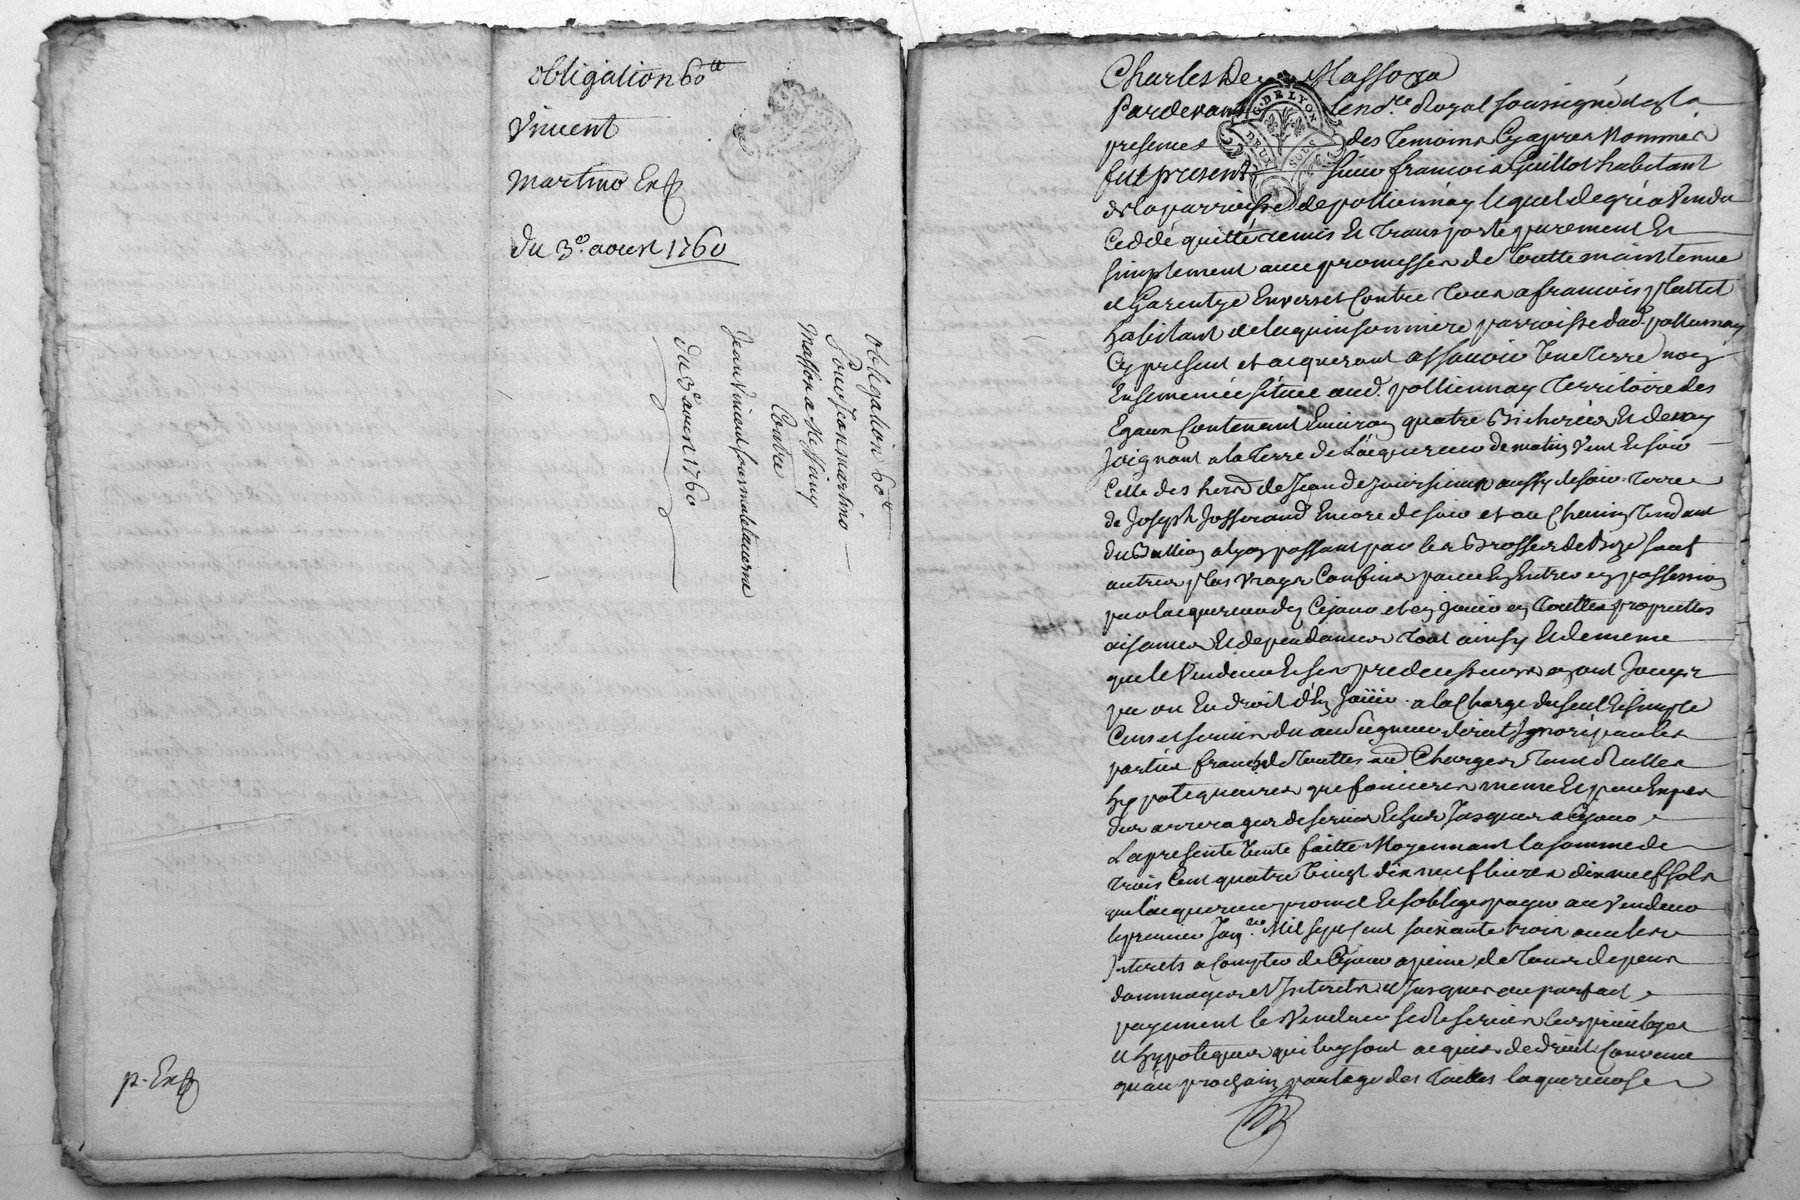 obligation 60ᵗᵗ
Vincent
Martino Exp
Du 3ᵉ aoust 1760
Obligation 60
Pour Jean Martino
Masson a Messimy
Contre
Jean Vincent
du 3ᵉ aoust 1760
p. Exp
Charles De Masso
G. DE LYON
DEUX SOLS
Pardevant le no.ʳᵉ Royal soussigné et
presence des temoins cy apres nommés
fut present Sieur francois Guillot habitant
de la parroisse de pollionnay lequel de gré a vendu
Ceddé quitté remis et transporté purement et
simplement avec promesses de toutte maintenue
et Garentye Envers et Contre tous a francois plattet
habitant de parroisse dud. pollionnay
Cy present et acquerant assavoir une terre
Ensemencée située aud. pollionnay territoire des
Egaux Contenant Environ quatre Bicherées et demy
Joignant a la terre de L'acquereur de matin vent et soir
Celle des her.ˢ de Jean aussy de soir terre
de Joseph Josserand Encore de soir et au Chemin tendant
du a lyon passant par les Brosses de sauf
autres plus vrayes Confins pour En Entrer en possession
par lacquereur des Cejourd et en jouir en touttes proprietés
aisances et dependances tout ainsy et de meme
que le vendeur et ses predecesseurs ayant Jouyr
pu ou Eu droit d'En Joüir. a la Charge du seul et simple
Cens et servis du au Seigneur direct Ignoré par les
parties franche de touttes Charges tant
hypotequaires que foncieres meme Et pour Expres
des arrerages de servis Echus Jusques a Cejour
La presente vente faitte Moyennant la somme de
trois Cent quatre vingt dix neuf livres dix neuf sols
que lacquereur promet Et soblige payer au vendeur
le premier Jan.ᵉʳ Mil sept cent soixante trois avec les
Interets a Compter de Cejour a peine de tous depens
dommages et Interets et Jusques au parfait
payement le vendeur se Reserve les privileges
et hypoteques qui luy sont acquis de droit Convenu
quau prochain partage des tailles lacquereur se